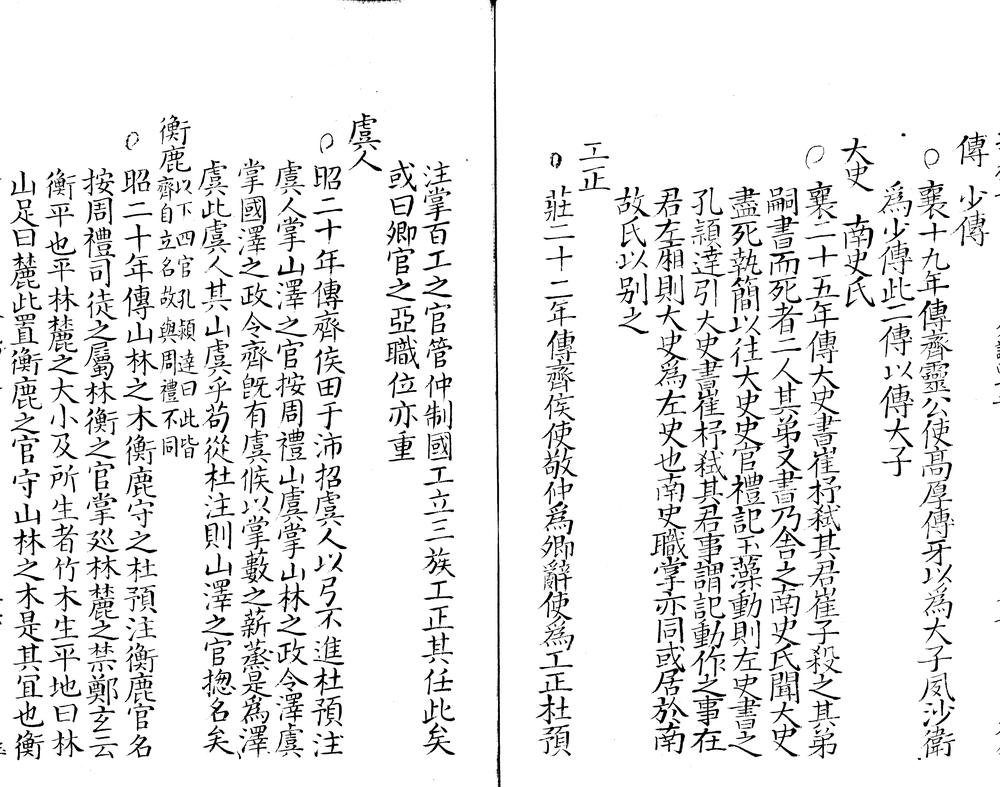 傳 少傳
○ 襄十九年傳齊靈公使高厚傅牙以為大子夙沙衛
為少傳此二傳以傳大子
大史 南史氏
○ 襄二十五年傳大史書崔杼弑其君崔子殺之其弟
嗣書而死者二人其弟又書乃舍之南史氏聞大史
盡死執簡以往大史史官禮記玉藻動則左史書之
孔穎達引大史書崔杼弑其君事謂記動作之事在
君左廂則大史為左史也南史職掌亦同或居於南
故氏以别之
工正
○ 莊二十二年傳齊侯使敬仲為卿辭使為工正杜預
注掌百工之官管仲制國工立三族工正其任此矣
或曰卿官之亞職位亦重
虞人
○ 昭二十年傳齊侯田于沛招虞人以弓不進杜預注
虞人掌山澤之官按周禮山虞掌山林之政令澤虞
掌國澤之政令齊旣有虞候以掌藪之薪蒸是為澤
虞此虞人其山虞乎苟從杜注則山澤之官揔名矣
衡鹿以下四官孔穎達曰此皆
齊自立名故與周禮不同
○ 昭二十年傳山林之木衡鹿守之杜預注衡鹿官名
按周禮司徒之屬林衡之官掌巡林麓之禁鄭玄云
衡平也平林麓之大小及所生者竹木生平地曰林
山足曰麓此置衡鹿之官守山林之木是其冝也衡